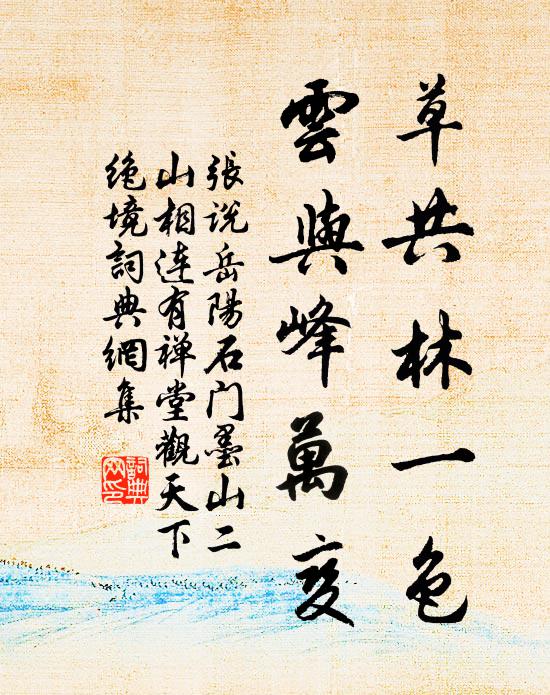 草共林一色
雲與峰萬变
張說岳陽石门墨山二
山相连有禅堂觀天下
绝境詞典網集
詞典
网印